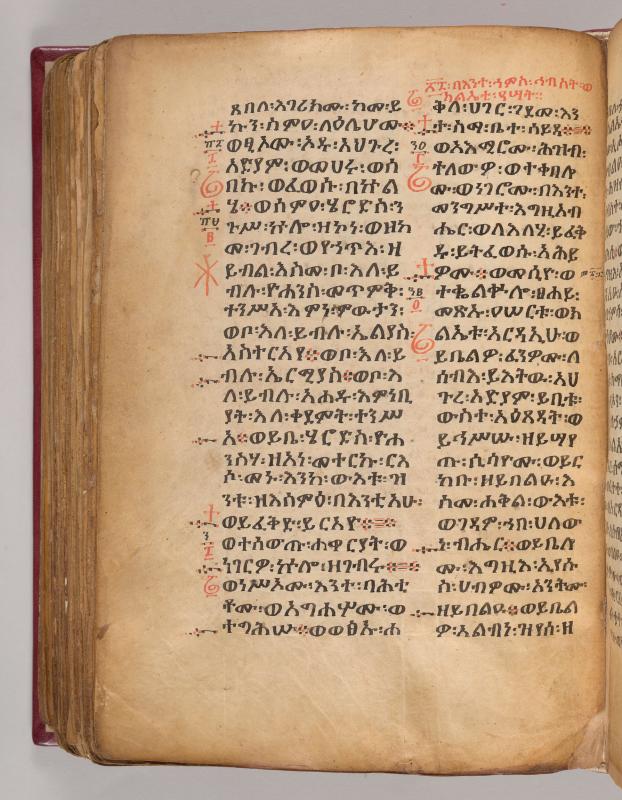 ጸበለ፡እገሪክሙ፡ከመ፡ይ
ኩን፡ስምዐ፡ላዕሌሆሙ።
ወፂኦሙ፡ኦዱ፡አህጉረ፡
አድያም፡ወመሀሩ፡ወሰ
በኩ፡ወፈወሱ፡በኵል
ሄ።ወሰምዐ፡ሄሮድስ፡ን
ጉሥ፡ኵሎ፡ዘኮነ፡ወዘከ
መ፡ገብረ፡ወየኀጥእ፡ዘ
ይብል፡እስመ፡ቦ፡እለ፡ይ
ብሉ፡ዮሐንስ፡መጥምቅ፡
ተንሥአ፡እምነ፡ምውታን፡
ወቦ፡እለ፡ይብሉ፡ኤልያስ፡
አስተርአየ።ወቦ፡እለ፡ይ
ብሉ፡ኤርሚያስ።ወቦ፡እ
ለ፡ይብሉ፡አሐዱ፡እምነቢ
ያት፡እለ፡ቀደምት፡ተንሥ
አ።ወይቤ፡ሄሮድስ፡ዮሐ
ንስሃ፡ዘአነ፡መተርኩ፡ርእ
ሶ፡መኑ፡እንከ፡ውእቱ፡ዝ
ንቱ፡ዝእሰምዕ፡በእንቲአሁ፡
ወይፈቅድ፡ይርአዮ።
ወተሰውጡ፡ሐዋርያት፡ወ
ነገርዎ፡ኵሎ፡ዘገብሩ።
ወነሥኦሙ፡እንተ፡ባሕቲ
ቶሙ፡ወአግሐሦሙ፡ወ
ተግሕሡ።ወወፅኡ፡ሐ
በእንተ፡ኀምስ፡ኅብስት፡ወ
ክልኤቲ፡ዓሣት።
ቅለ፡ሀገር፡ገዳመ፡እን
ተ፡ስማ፡ቤተ፡ሳይዳ።
ወአእሚሮሙ፡ሕዝብ፡
ተለውዎ፡ወተቀበሎ
ሙ፡ወነገሮሙ፡በእንተ፡
መንግሥተ፡እግዚአብ
ሔር፡ወለእለሂ፡ይፈቅ
ዱ፡ይትፈወሱ፡አሕይ
ዎሙ።ወመሲዮ፡ወ
ተቈልቊሎ፡ፀሐይ፡
መጽኡ፡ዐሠርቱ፡ወክ
ልኤቱ፡አርዳኢሁ፡ወ
ይቤልዎ፡ፈንዎሙ፡ለ
ሰብእ፡ይእትዉ፡አህ
ጉረ፡አድያም፡ይቢቱ፡
ውስተ፡አዕጻዳት፡ወ
ይኅሥሡ፡ዘይሣየ
ጡ፡ሲሳዮሙ፡ወይር
ከቡ፡ዘይበልዑ፡እ
ስመ፡ሐቅል፡ውእቱ፡
ወገዳም፡ኀበ፡ሀለው
ነ፡ብሔር።ወይቤሎ
ሙ፡እግዚእ፡ኢየሱ
ስ፡ሀብዎሙ፡አንትሙ፡
ዘይበልዑ።ወይቤል
ዎ፡አልብነ፡ዝየሰ፡ዘ